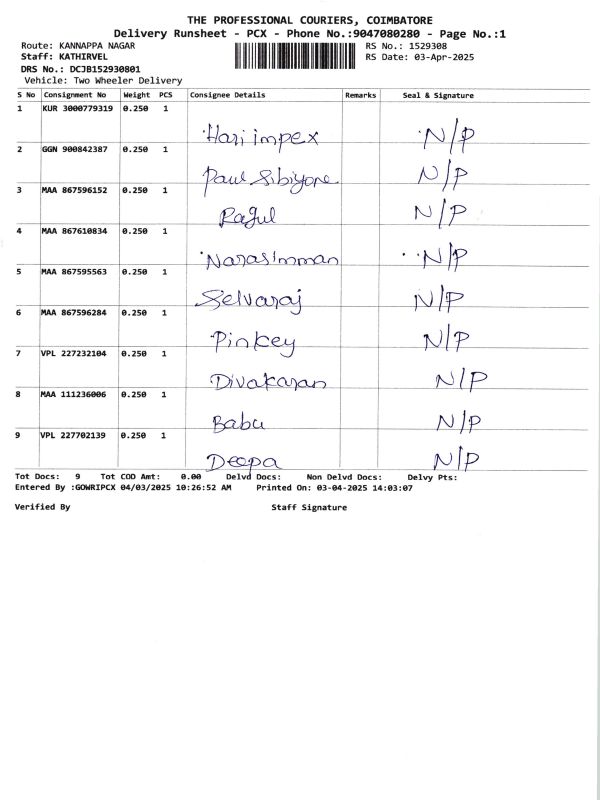 THE PROFESSIONAL COURIERS, COIMBATORE
Delivery Runsheet - PCX - Phone No.:9047080280 - Page No.:1
Route: KANNAPPA NAGAR RS No.: 1529308
Staff: KATHIRVEL RS Date: 03-Apr-2025
DRS No.: DCJB152930801
Vehicle: Two Wheeler Delivery
S No Consignment No Weight PCS Consignee Details Remarks Seal & Signature
1 KUR 3000779319 0.250 1
Hari impex N/P
2 GGN 900842387 0.250 1
Paul Sibiyone N/P
3 MAA 867596152 0.250 1
Ragul N/P
4 MAA 867610834 0.250 1
Narasimman N/P
5 MAA 867595563 0.250 1
Selvaraj N/P
6 MAA 867596284 0.250 1
Pinkey N/P
7 VPL 227232104 0.250 1
Divakaran N/P
8 MAA 111236006 0.250 1
Babu N/P
9 VPL 227702139 0.250 1
Deepa N/P
Tot Docs: 9 Tot COD Amt: 0.00 Delvd Docs: Non Delvd Docs: Delvy Pts:
Entered By :GOWRIPCX 04/03/2025 10:26:52 AM Printed On: 03-04-2025 14:03:07
Verified By Staff Signature